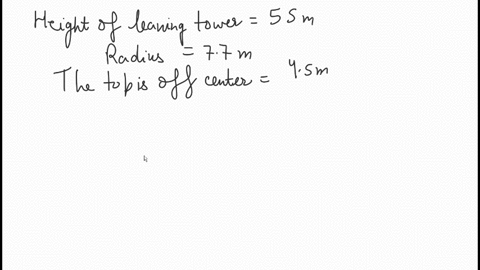 Height of leaning tower = 55 m
Radius = 7.7 m
The top is off center = 4.5 m